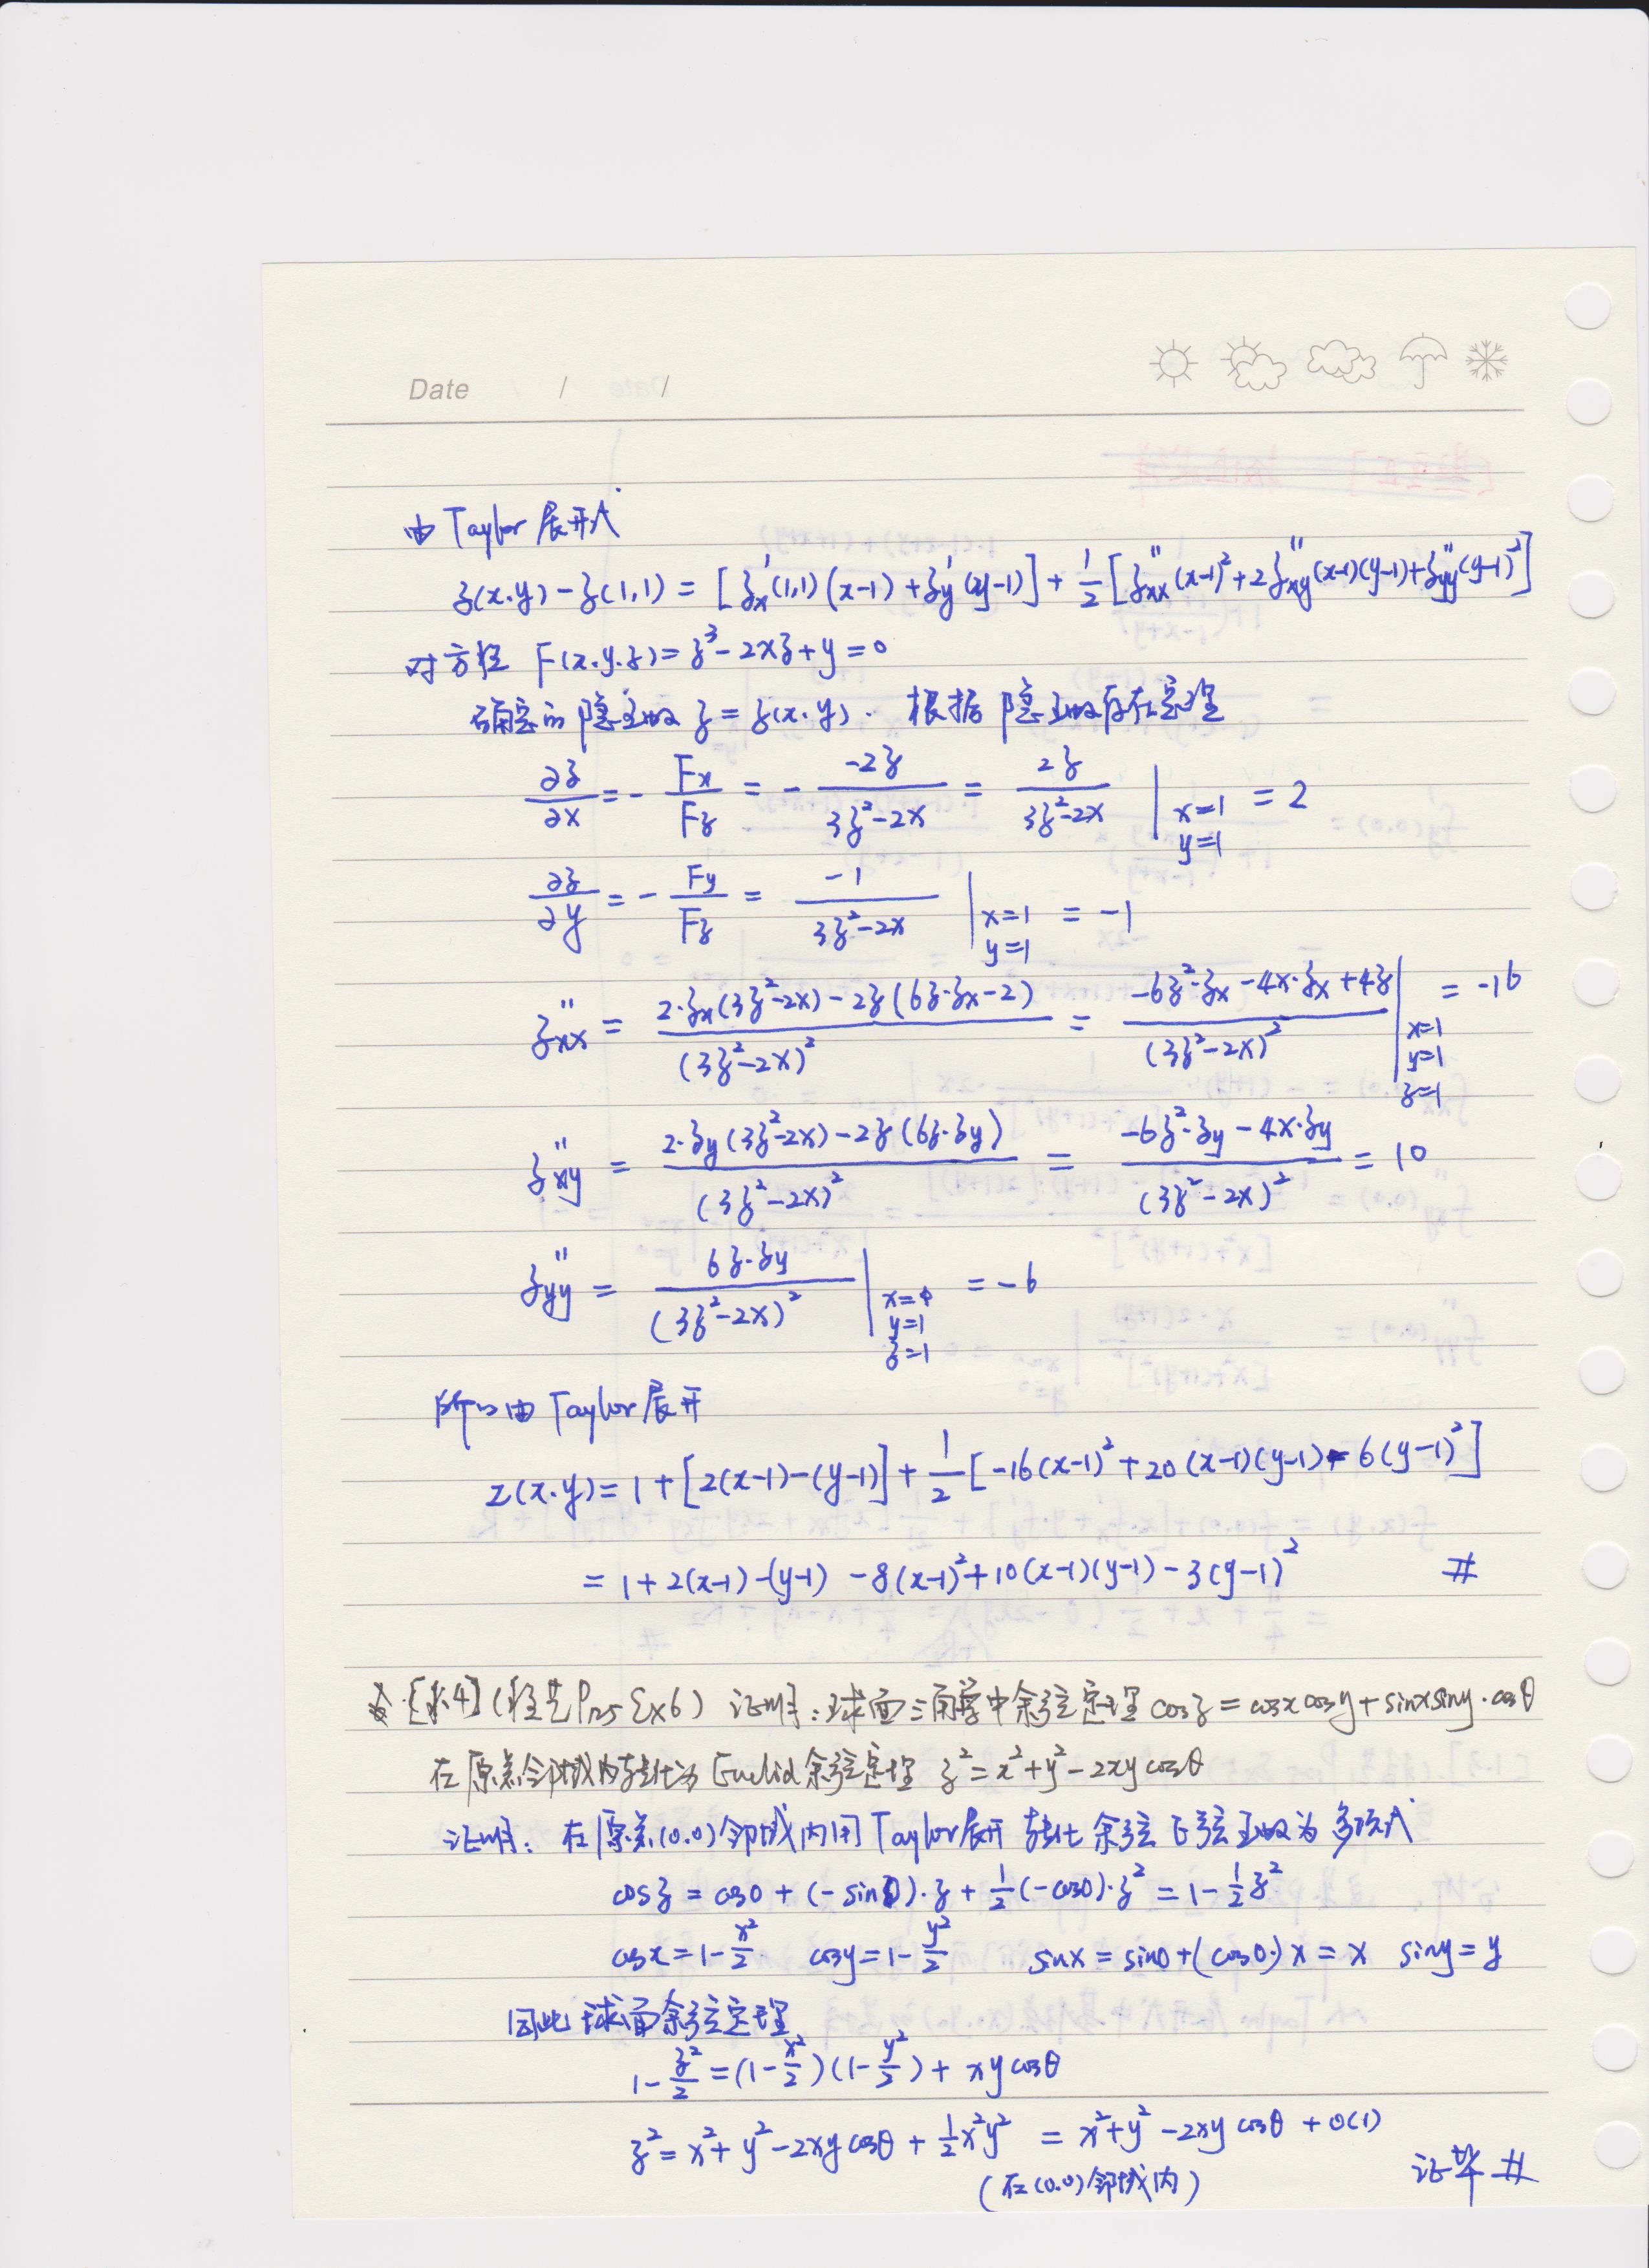 Date / /
由 Taylor 展开式
z(x.y) - z(1,1) = [z'x(1,1)(x-1) + z'y(y-1)] + 1/2 [z''xx(x-1)² + 2z''xy(x-1)(y-1) + z''yy(y-1)²]
对方程 F(x.y.z) = z³ - 2xz + y = 0
确定的隐函数 z = z(x.y). 根据隐函数存在定理
∂z/∂x = - Fx/Fz = - -2z/(3z²-2x) = 2z/(3z²-2x) | x=1 y=1 = 2
∂z/∂y = - Fy/Fz = -1/(3z²-2x) | x=1 y=1 = -1
z''xx = (2·zx(3z²-2x) - 2z(6z·zx-2))/(3z²-2x)² = (-6z²·zx - 4x·zx + 4z)/(3z²-2x)² | x=1 y=1 z=1 = -16
z''xy = (2·zy(3z²-2x) - 2z(6z·zy))/(3z²-2x)² = (-6z²·zy - 4x·zy)/(3z²-2x)² = 10
z''yy = 6z·zy/(3z²-2x)² | y=1 z=1 = -6
所以由 Taylor 展开
z(x.y) = 1 + [2(x-1) - (y-1)] + 1/2 [-16(x-1)² + 20(x-1)(y-1) - 6(y-1)²]
= 1 + 2(x-1) - (y-1) - 8(x-1)² + 10(x-1)(y-1) - 3(y-1)² #
证明: 球面三角学中余弦定理 cosz = cosxcosy + sinxsiny·cosθ
在原点邻域内转化为 Euclid 余弦定理 z² = x² + y² - 2xycosθ
证明: 在原点(0.0)邻域内用 Taylor 展开 转化 余弦 正弦函数为多项式
cosz = cos0 + (-sin0)·z + 1/2(-cos0)·z² = 1 - 1/2 z²
cosx = 1 - x²/2 cosy = 1 - y²/2 sinx = sin0 + (cos0·)x = x siny = y
因此球面余弦定理
1 - z²/2 = (1 - x²/2)(1 - y²/2) + xycosθ
z² = x² + y² - 2xycosθ + 1/2 x²y² = x² + y² - 2xycosθ + o(1)
(在(0.0)邻域内) 证毕 #